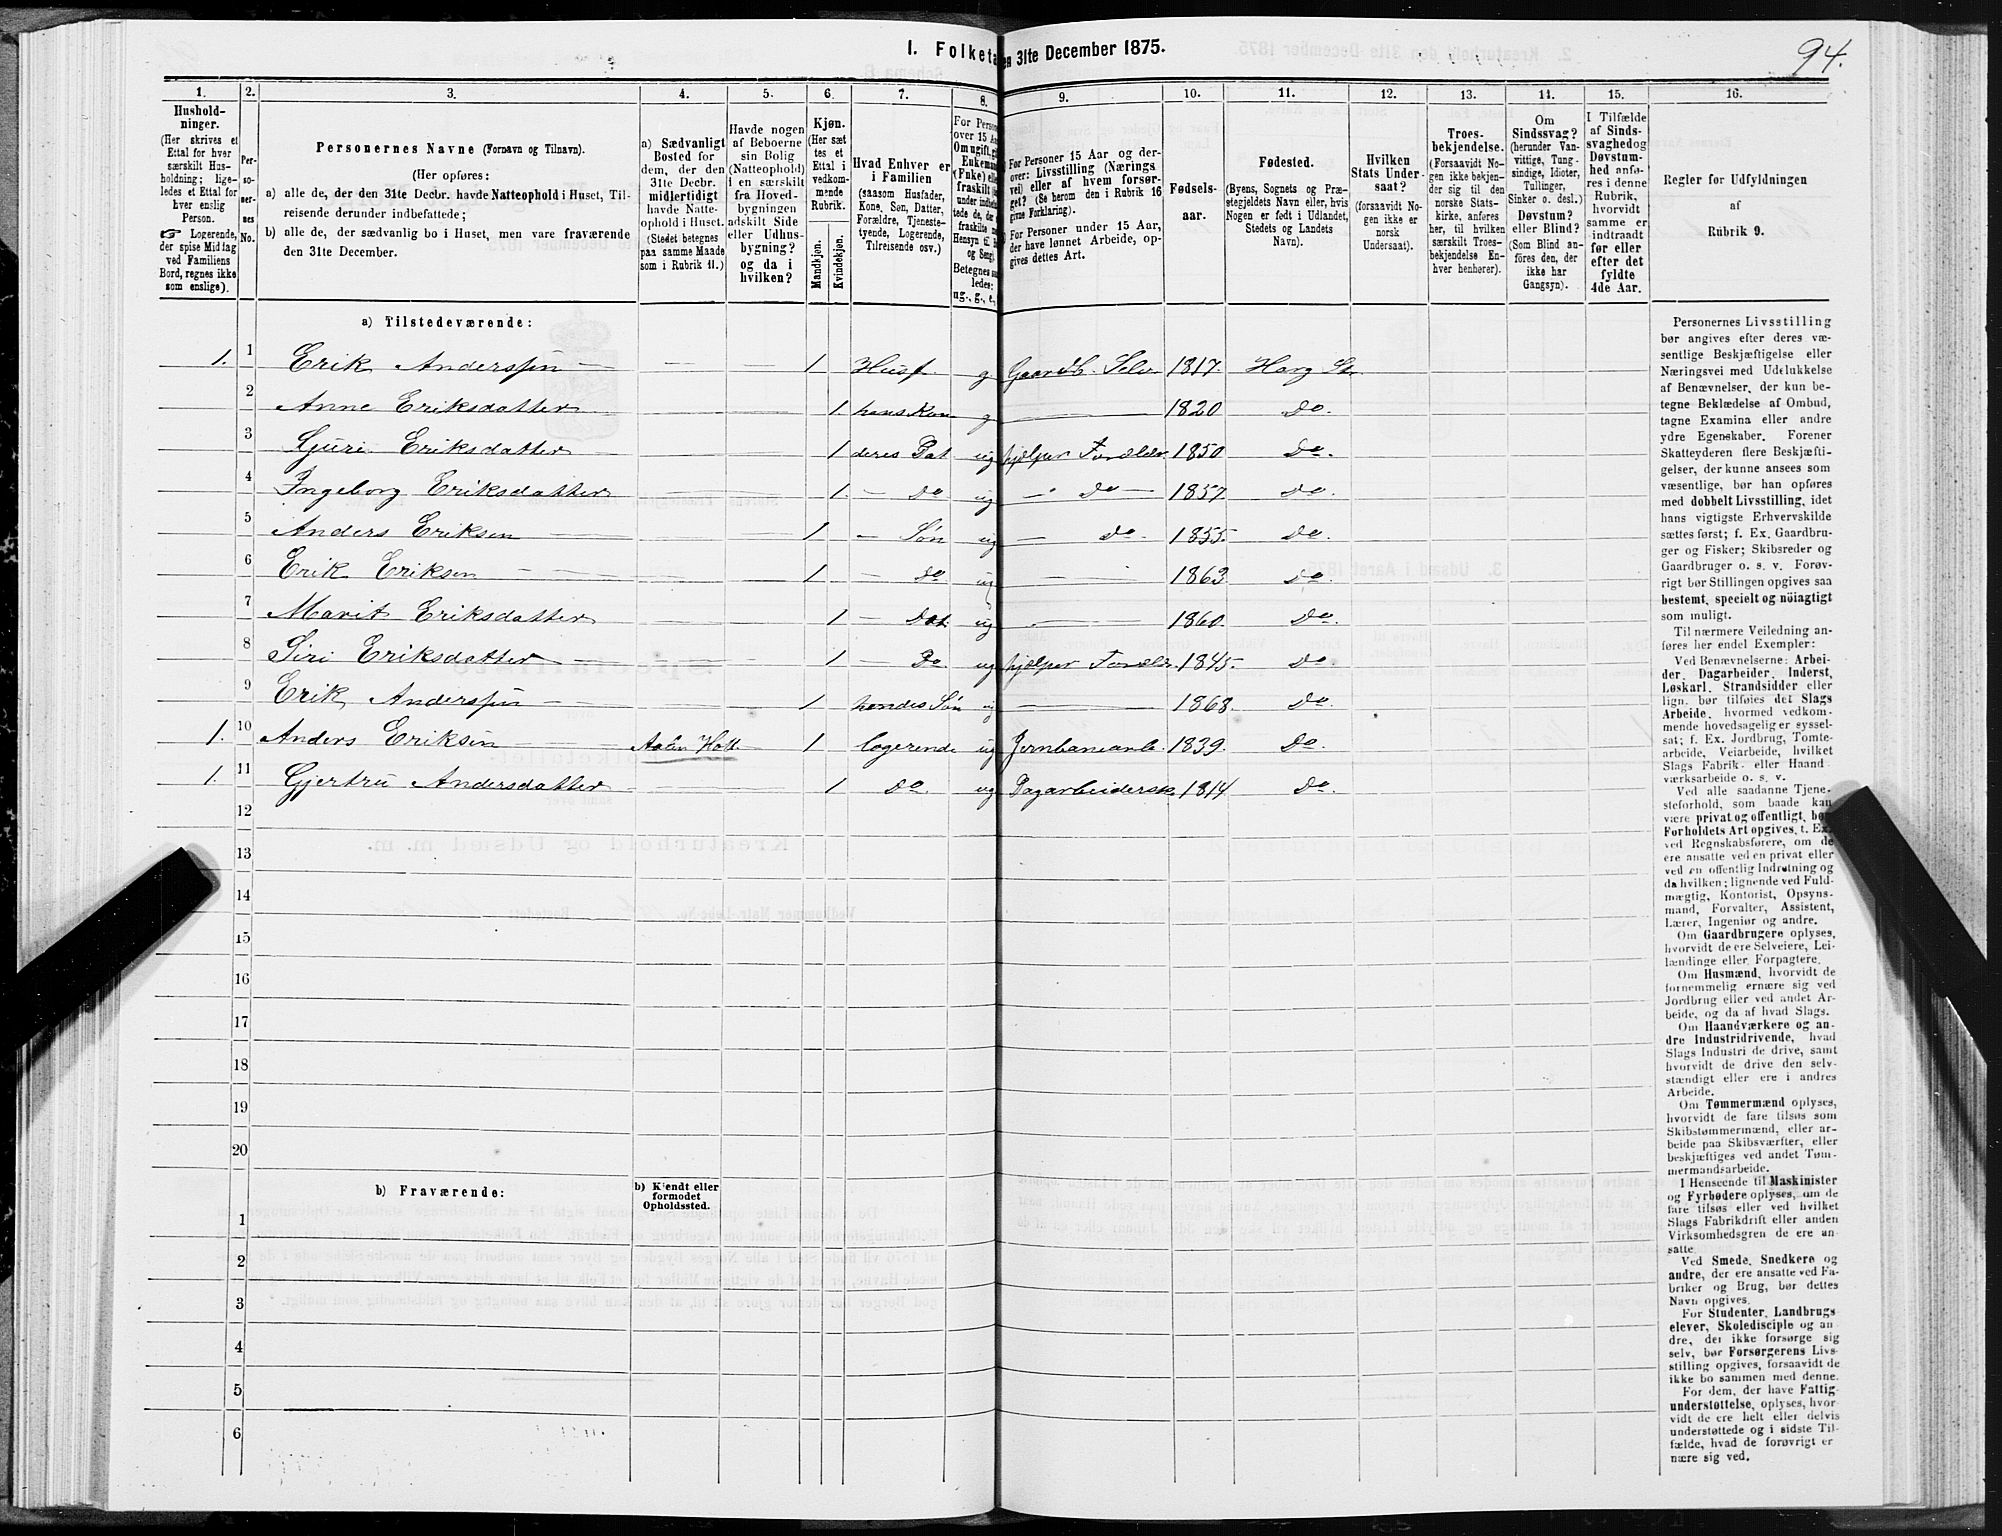 94.
I. Folketæ
en 31te December 1875.
1. 2. 3. 4. 5. 6. 7. 8. 9. 10. 11. 12. 13. 14. 15. 16.
Hushold-
ninger.
(Her skrives et
Ettal for hver
særskilt Hus-
holdning; lige-
ledes et Ettal for
hver enslig
Person.
☞ Logerende,
der spise Middag
ved Familiens
Bord, regnes ikke
som enslige).
Per-
so-
ner-
nes
No.
Personernes Navne (Fornavn og Tilnavn).
(Her opføres:
a) alle de, der den 31te Decbr. havde Natteophold i Huset, Til-
reisende derunder indbefattede;
b) alle de, der sædvanlig bo i Huset, men vare fraværende
den 31te December.
a) Sædvanligt
Bosted for
dem, der den
31te Decbr.
midlertidigt
havde Natte-
ophold i Huset.
(Stedet betegnes
paa samme Maade
som i Rubrik 11.)
Havde nogen
af Beboerne
sin Bolig
(Natteophold)
i en særskilt
fra Hoved-
bygningen
adskilt Side
eller Udhus-
bygning?
og da i
hvilken?
Kjøn.
(Her sæt
tes et
Ettal i
vedkom-
mende
Rubrik.
Mandkjøn.
Kvindekjøn.
Hvad Enhver er
i Familien
(saasom Husfader,
Kone, Søn, Datter,
Forældre, Tjeneste-
tyende, Logerende,
Tilreisende osv.)
For Person
over 15 Aa
Om ugift, gi
Enkeman
(Enke) elle
fraskilt
under indbe
tede de, der
fraskilte
Hensyn til
og Seng).
Betegnes sa
ledes:
ug., g., e.,
For Personer 15 Aar og der-
over: Livsstilling (Nærings
vei) eller af hvem forsør-
get? (Se herom den i Rubrik 16
givne Forklaring).
For Personer under 15 Aar,
der have lønnet Arbeide, op-
gives dettes Art.
Fødsels-
aar.
Fødested.
(Byens, Sognets og Præ-
stegjeldets Navn eller, hvis
Nogen er født i Udlandet,
Stedets og Landets
Navn).
Hvilken
Stats Under-
saat?
(forsaavidt No-
gen ikke er
norsk
Undersaat).
Troes-
bekjendelse.
(Forsaavidt No-
gen ikke bekjen-
der sig til den
norske Stats-
kirke, anføres
her, til hvilken
særskilt Troes-
bekjendelse En-
hver henhører).
Om
Sindssvag?
(herunder Van-
vittige, Tung-
sindige, Idioter,
Tullinger,
Sinker o. desl.)
Døvstum?
eller Blind?
(Som Blind an-
føres den, der
ikke har
Gangsyn).
I Tilfælde
af Sinds-
svaghed og
Døvstum-
hed anfø-
res i denne
Rubrik,
hvorvidt
samme er
indtraadt
før eller
efter det
fyldte
4de Aar.
Regler for Udfyldningen
af
Rubrik 9.
a) Tilstedeværende:
1. 1 Erik Anderssen — 1 Husf g Gaardb. Selv. 1817. Horg St.
2 Anne Eriksdatter 1 hans Kon g — 1820 Do.
3 Gjuri Eriksdatter 1 deres Dat ug hjælper Forældr. 1850 Do.
4 Ingeborg Eriksdatter 1. — Do ug — Do — 1857. Do.
5 Anders Eriksen 1 — Søn ug — Do. 1855. Do.
6 Erik Eriksen 1 — Do ug — 1863 Do.
7 Marit Eriksdatter 1 — Dat. ug — 1860. Do.
8 Siri Eriksdatter — 1 — Do. ug hjælper Forældr. 1845. Do
9 Erik Anderssen 1 hendes Søn ug — 1868. Do.
1. 10 Anders Eriksen Aalen Holt 1 logerende ug Jernbanearb. 1839. Do.
1. 11 Gjertru Andersdatter 1 Do. ug Dagarbeidersk. 1814 Do.
12
13
14
15
16
17
18
19
20
b) Fraværende:
b) Kjendt eller
formodet
Opholdssted.
1
2
3
4
5
6
Personernes Livsstilling
bør angives efter deres væ-
sentlige Beskjæftigelse eller
Næringsvei med Udelukkelse
af Benævnelser, der kun be-
tegne Beklædelse af Ombud,
tagne Examina eller andre
ydre Egenskaber. Forener
Skatteyderen flere Beskjæfti-
gelser, der kunne ansees som
væsentlige, bør han opføres
med dobbelt Livsstilling, idet
hans vigtigste Erhvervskilde
sættes først; f. Ex. Gaardbru-
ger og Fisker; Skibsreder og
Gaardbruger o. s. v. Forøv-
rigt bør Stillingen opgives saa
bestemt, specielt og nöiagtigt
som muligt.
Til nærmere Veiledning an-
føres her endel Exempler:
Ved Benævnelserne: Arbei-
der, Dagarbeider, Inderst,
Løskarl, Strandsidder eller
lign. bør tilføies det Slags
Arbeide, hvormed vedkom-
mende hovedsagelig er syssel-
sat; f. Ex. Jordbrug, Tomte-
arbeide, Veiarbeide, hvilket
Slags Fabrik- eller Haand-
værksarbeide o. s. v.
Ved alle saadanne Tjene-
steforhold, som baade kan
være privat og offentligt, bør
Forholdets Art opgives, t. Ex.
ved Regnskabsførere, om de
ere ansatte ved en privat eller
ved en offentlig Indretning og
da hvilken; lignende ved Fuld-
mægtig, Kontorist, Opsyns-
mand, Forvalter, Assistent,
Lærer, Ingeniør og andre.
Om Gaardbrugere oplyses,
hvorvidt de ere Selveiere, Lei-
lændinge eller Forpagtere.
Om Husmænd, hvorvidt de
fornemmelig ernære sig ved
Jordbrug eller ved andet Ar-
beide, og da af hvad Slags.
Om Haandværkere og an-
dre Industridrivende, hvad
Slags Industri de drive, samt
hvorvidt de drive den selv-
stændigt eller ere i andres
Arbeide.
Om Tømmermænd oplyses,
hvorvidt de fare tilsøs som
Skibstømmermænd, eller ar-
beide paa Skibsværfter, eller
beskjæftiges ved andet Tøm-
mermandsarbeide.
I Henseende til Maskinister
og Fyrbødere oplyses, om de
fare tilsøs eller ved hvilket
Slags Fabrikdrift eller anden
Virksomhedsgren de ere an-
satte.
Ved Smede, Snedkere og
andre, der ere ansatte ved Fa-
briker og Brug, bør dettes
Navn opgives.
For Studenter, Landbrugs-
elever, Skoledisciple og an-
dre, der ikke forsørge sig
selv, bør Forsørgerens Livs-
stilling opgives, forsaavidt de
ikke bo sammen med denne.
For dem, der have Fattig-
understøttelse, oplyses, hvor-
vidt de ere helt eller delvis
understøttede og i sidste Til-
fælde, hvad de forøvrigt er
nære sig ved.